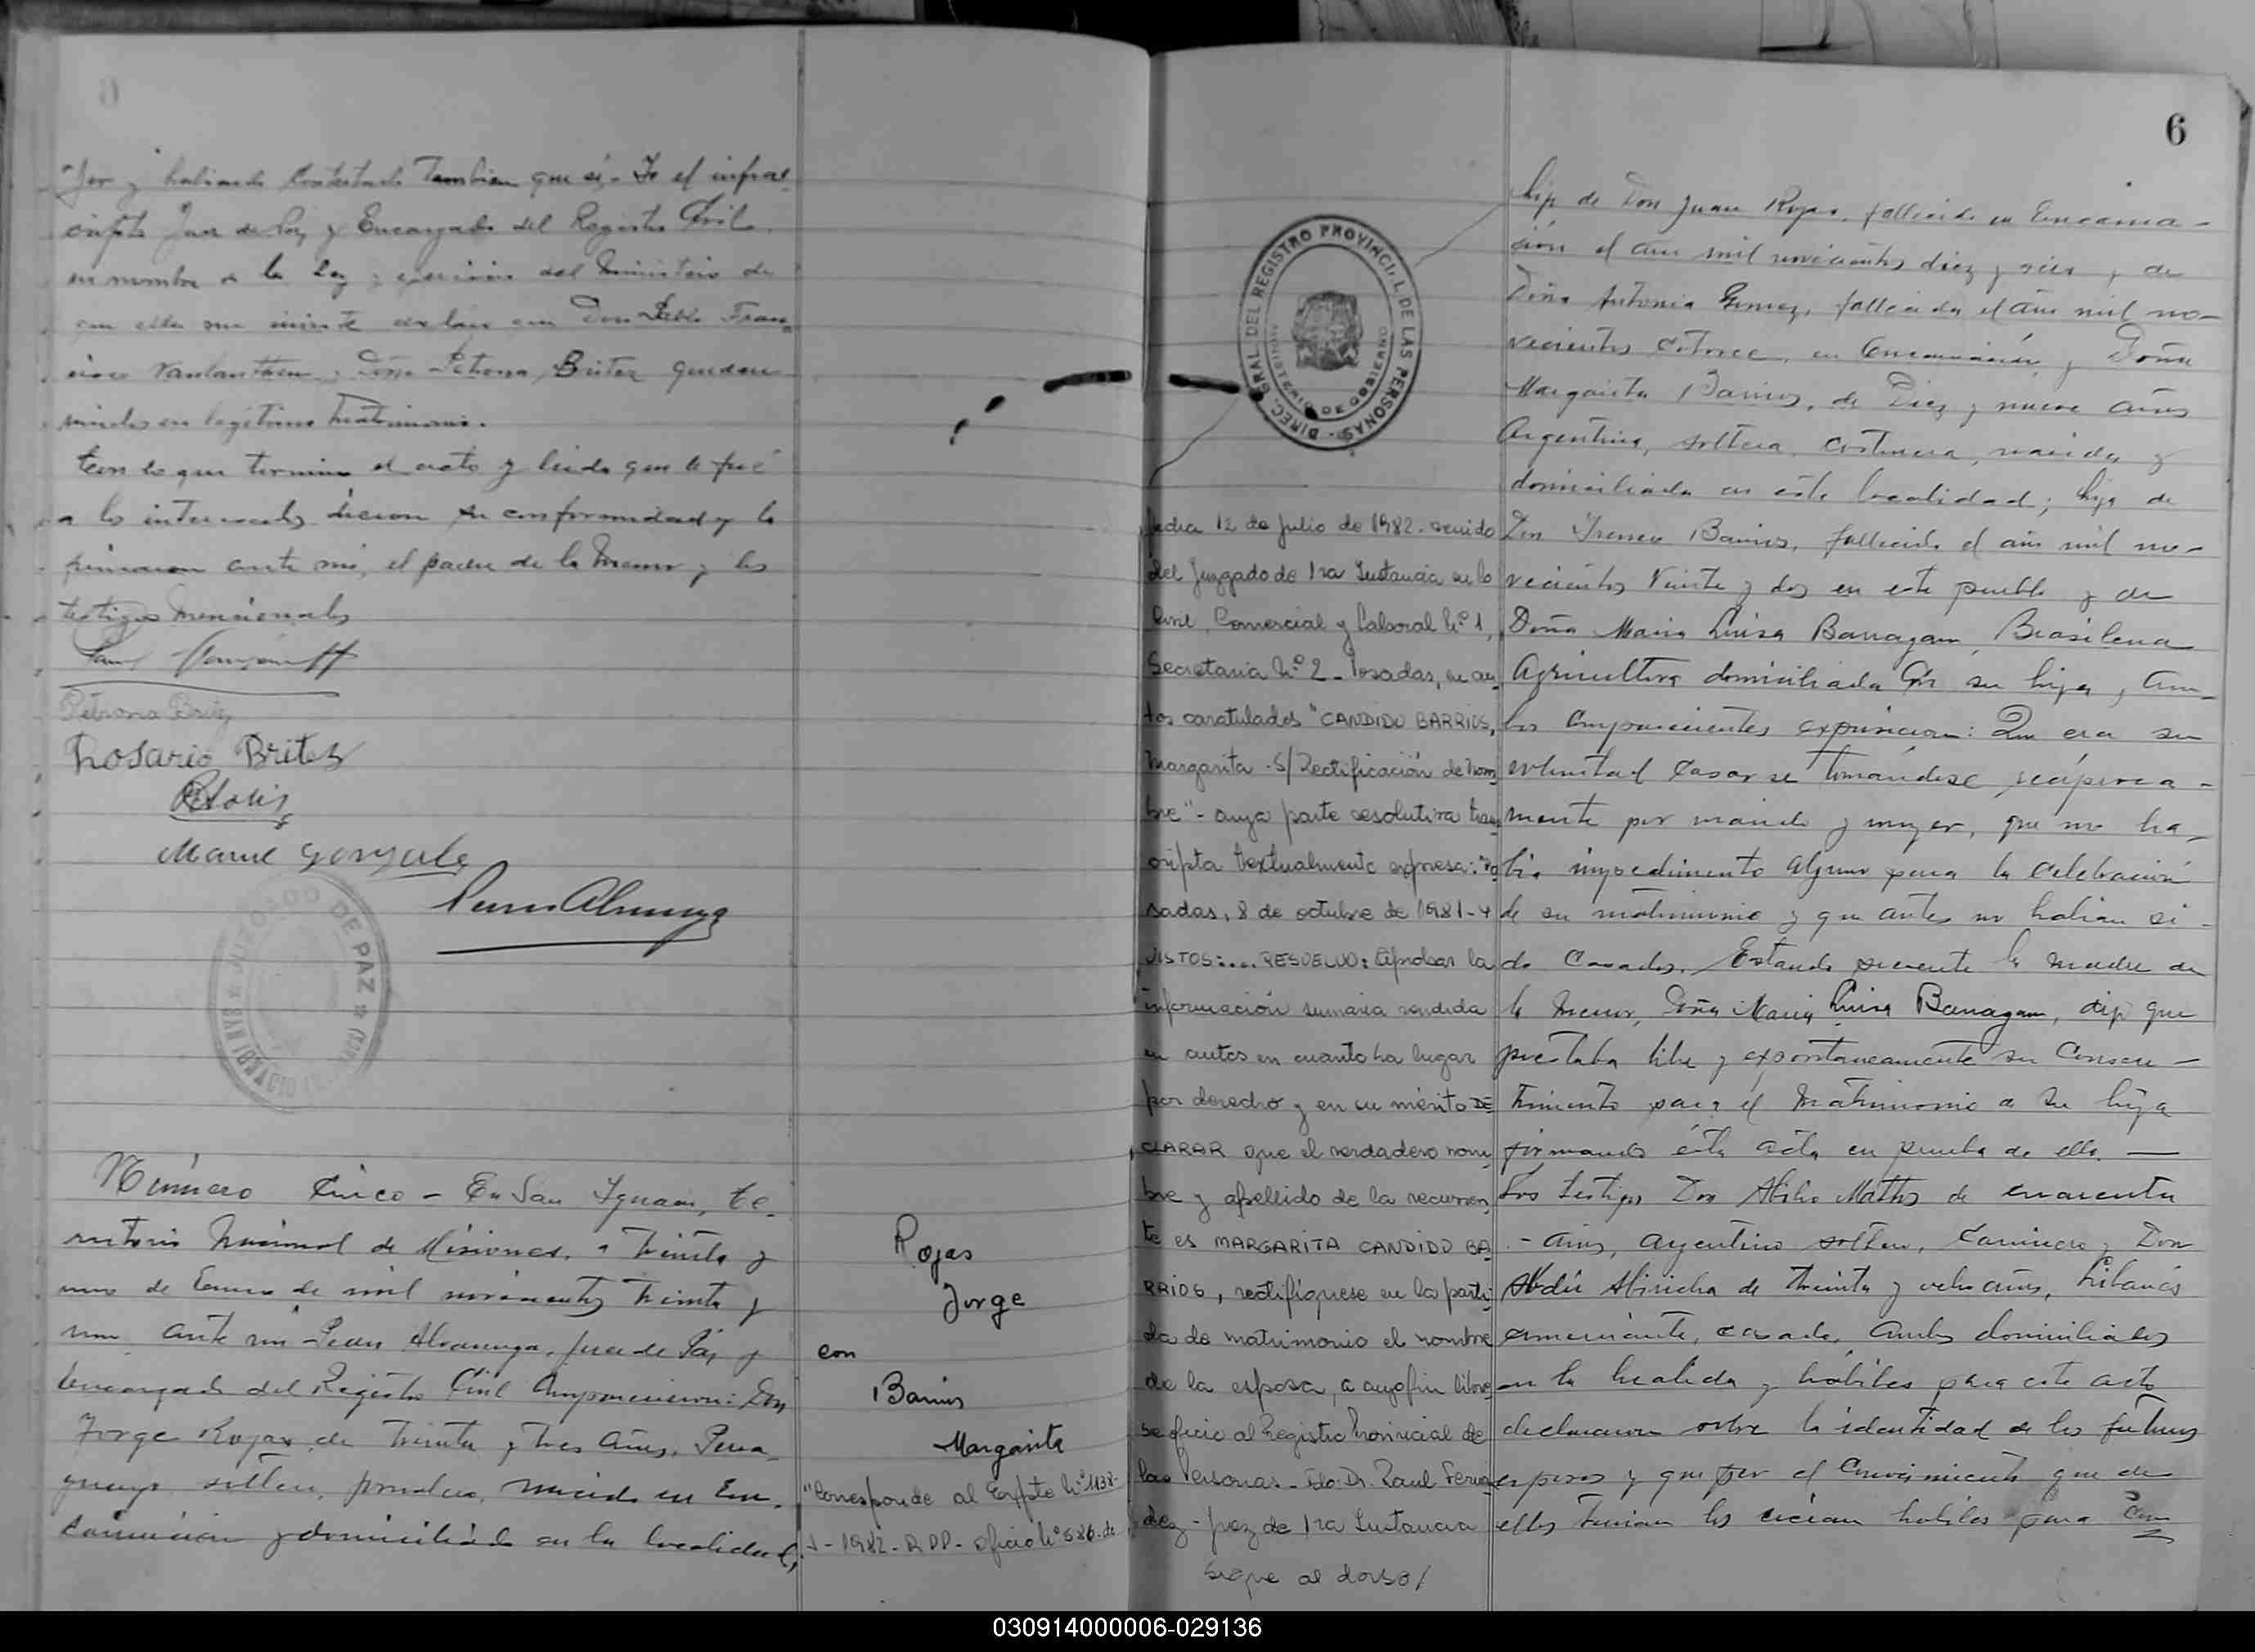 jer y habiendo contestado tambien que sí. Yo el infras-
cripto Juez de Paz y Encargado del Registro Civil
en nombre de la Ley y del Ministerio de
Don Pablo Fran-
cisco Vanlanthen y Doña Petrona Britez quedan
unidos en legítimo matrimonio.
Con lo que termino el acto y leida que le fué
a los interesados dieron su conformidad y la
firmaron ante mi, el padre de la menor y los
testigos mencionados
Petrona Britz
Rosario Britez
Manuel Gonzales
JUZGADO DE PAZ
SAN IGNACIO
Número Cinco - En San Ygnacio, Te-
rritorio Nacional de Misiones, a treinta y
uno de Enero de mil novecientos treinta y
uno ante mi Alvarenga, Juez de Paz y
Encargado del Registro Civil Comparecieron: Don
Jorge Rojas, de treinta y tres Años, Para-
guayo soltero, nacido en En-
carnación y domiciliado en la localidad,
Rojas
Jorge
con
Barrios
Margarita
"Corresponde al Expte Nº 1138-
J - 1982 - RPP - Oficio Nº 586 - de
DIREC. GRAL. DEL REGISTRO PROVINCIAL DE LAS PERSONAS
MINISTERIO DE GOBIERNO
fecha 12 de Julio de 1982 - venido
del Juzgado de 1ra Instancia en lo
Civil, Comercial y Laboral Nº 1,
Secretaria Nº 2 - Posadas, en au-
tos caratulados "CANDIDO BARRIOS,
Margarita - S/ Rectificación de Nom-
bre" - cuya parte resolutiva trans-
cripta textualmente expresa: "Po-
sadas, 8 de octubre de 1981 - Y
VISTOS:... RESUELVO: Aprobar la
información sumaria rendida
en autos en cuanto ha lugar
por derecho y en su mérito DE-
CLARAR que el verdadero nom-
bre y apellido de la recurren-
te es MARGARITA CANDIDO BA-
RRIOS, rectifíquese en la parti-
da de matrimonio el nombre
de la esposa, a cuyo fin líbre-
se oficio al Registro Provincial de
las Personas - Fdo. Dr. Raul Fernan-
dez - Juez de 1ra Instancia
sigue al dorso/
6
hijo de Don Juan Rojas, fallecido en Encarna-
ción el año mil novecientos diez y seis y de
Doña Antonia Gomez, fallecida el año mil no-
vecientos catorce, en Encarnación, y Doña
Margarita Barrios, de Diez y nueve años
Argentina, soltera, costurera, nacida y
domiciliada en esta localidad; hija de
Don Yreneo Barrios, fallecido el año mil no-
vecientos veinte y dos en este pueblo y de
Doña Maria Luisa Barragan, Brasilena
Agricultora domiciliada con su hija, Am-
bos comparecientes expusieron: Que era su
voluntad casarse tomándose recíproca-
mente por marido y mujer, que no ha-
bía impedimento alguno para la celebración
de su matrimonio y que antes no habian si-
do casados. Estando presente la madre de
la menor, Doña Maria Luisa Barragan, dijo que
prestaba libre y espontaneamente su consen-
timiento para el matrimonio de su hija
firmando ésta acta en prueba de ello. —
Los testigos Don Abilio Mattos de cuarenta
- años, argentino soltero, y Don
Abdu Abiricha de treinta y ocho años, Libanés
comerciante, casado, ambos domiciliados
en la localidad y hábiles para este acto
declararon sobre la identidad de los futuros
esposos y que por el conocimiento que de
ellos tenian los creian habiles para con